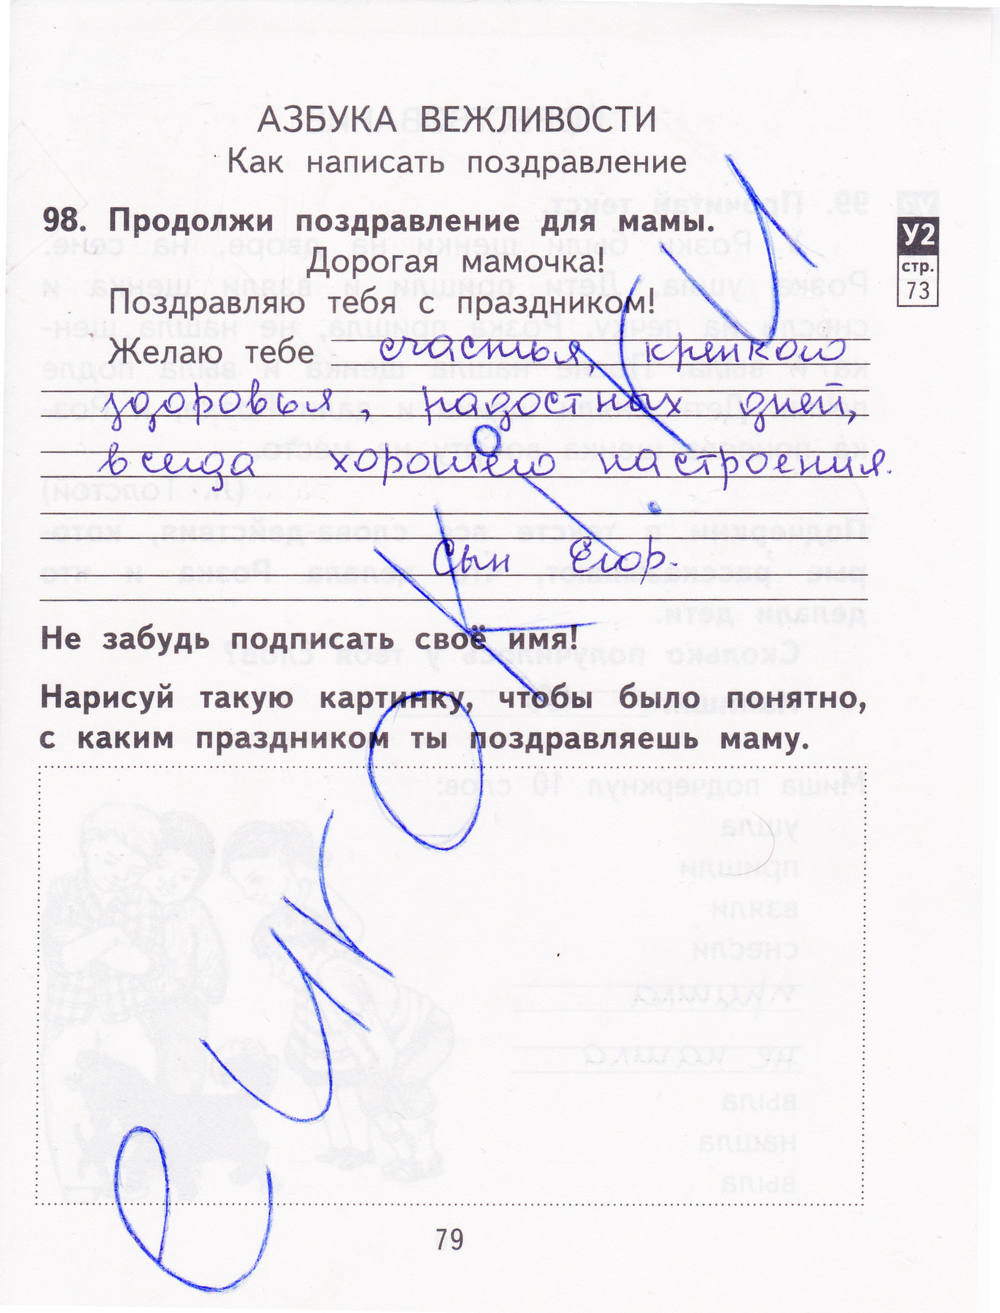 АЗБУКА ВЕЖЛИВОСТИ
Как написать поздравление
98. Продолжи поздравление для мамы.
У2
стр.
73
Дорогая мамочка!
Поздравляю тебя с праздником!
Желаю тебе счастья, крепкого
здоровья, радостных дней,
всегда хорошего настроения.
Сын Егор.
Не забудь подписать своё имя!
Нарисуй такую картинку, чтобы было понятно,
с каким праздником ты поздравляешь маму.
79